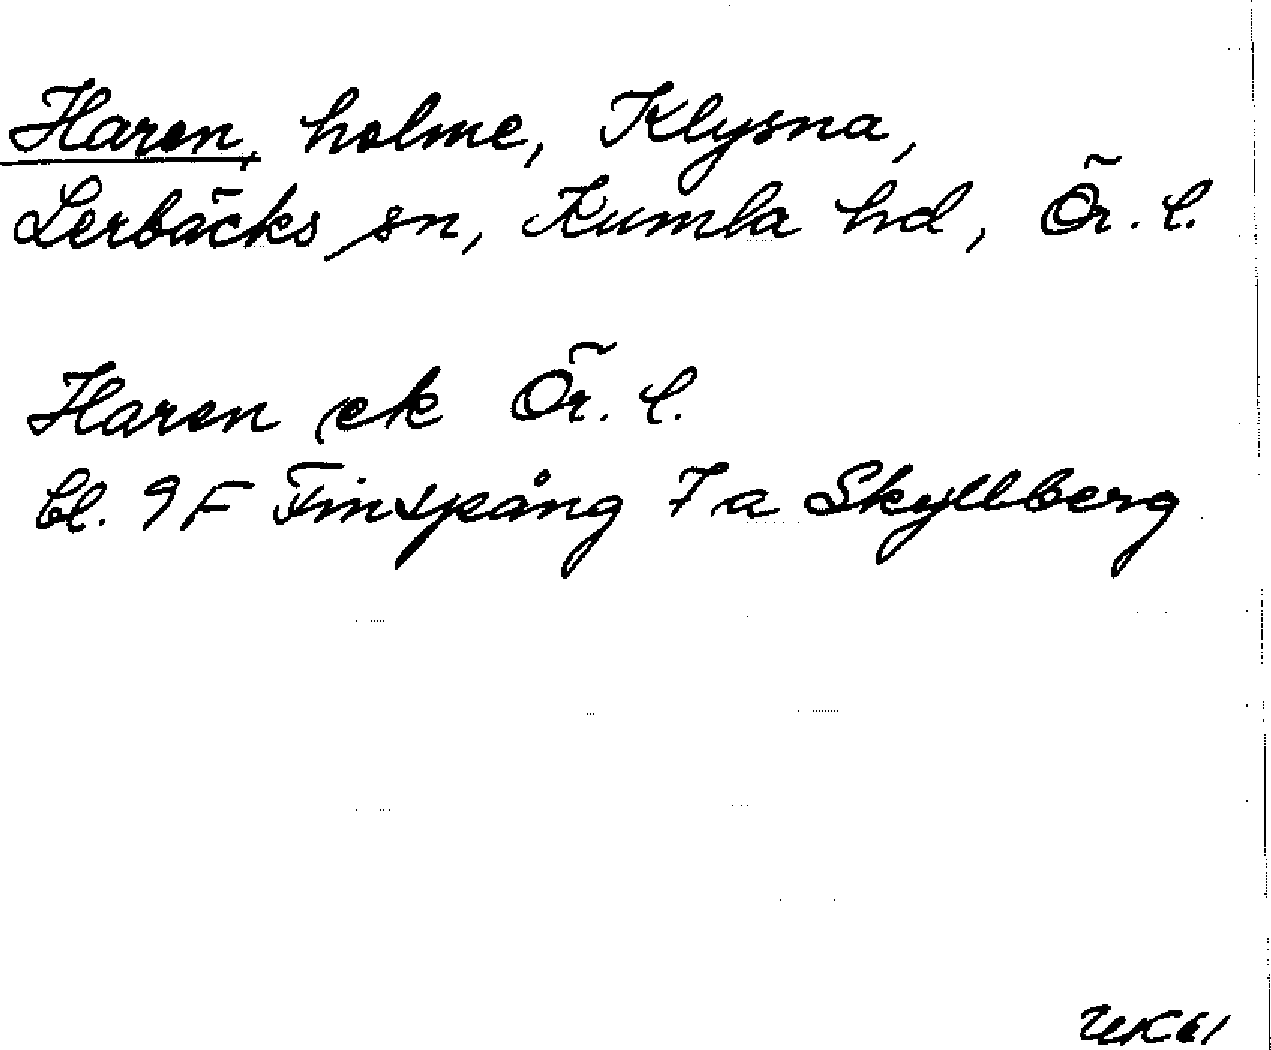 Haren, holme, Klysna,
Lerbäcks sn, Kumla hd, Ör. l.
Haren ek Ör. l.
bl. 9F Finspång 7a Skyllberg